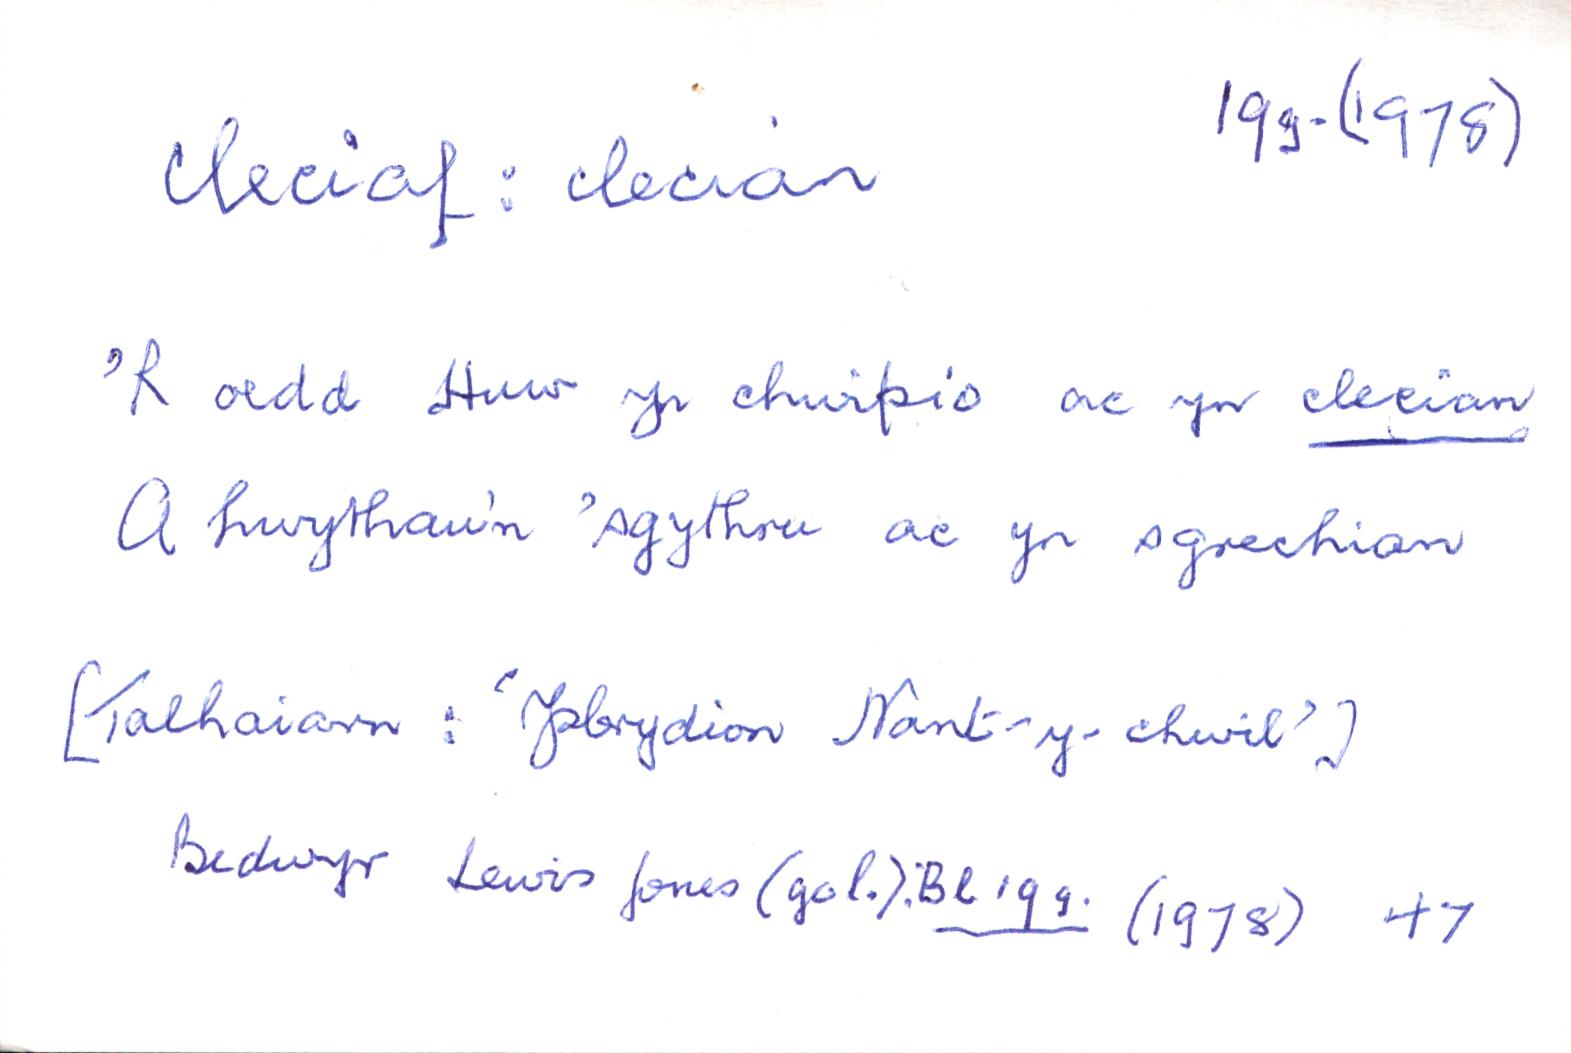 cleciaf : clecian
19g. (1978)
'R oedd Huw yn chwipio ac yn clecian
A hwythau'n 'sgythru ac yn sgrechian
[Talhaiarn : 'Ysbrydion Nant-y-chwil']
Bedwyr Lewis Jones (gol.): Bl 19g. (1978) 47